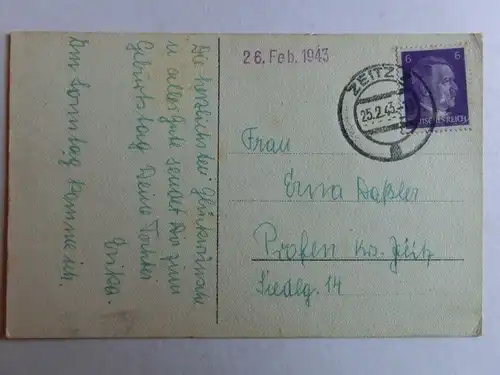 Die herzlichsten Glückwünsche
u. alles Gute sendet Dir zum
Geburtstag Deine Tochter
Erika.
Den Sonntag komme ich.
26. Feb. 1943
ZEITZ
25.2.43
6 6
Frau
Erna Daßler
Profen Krs. Zeitz
Siedlg. 14